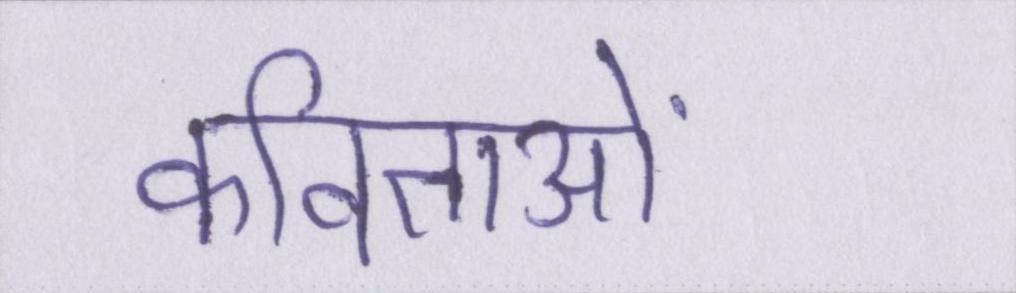 कविताओं